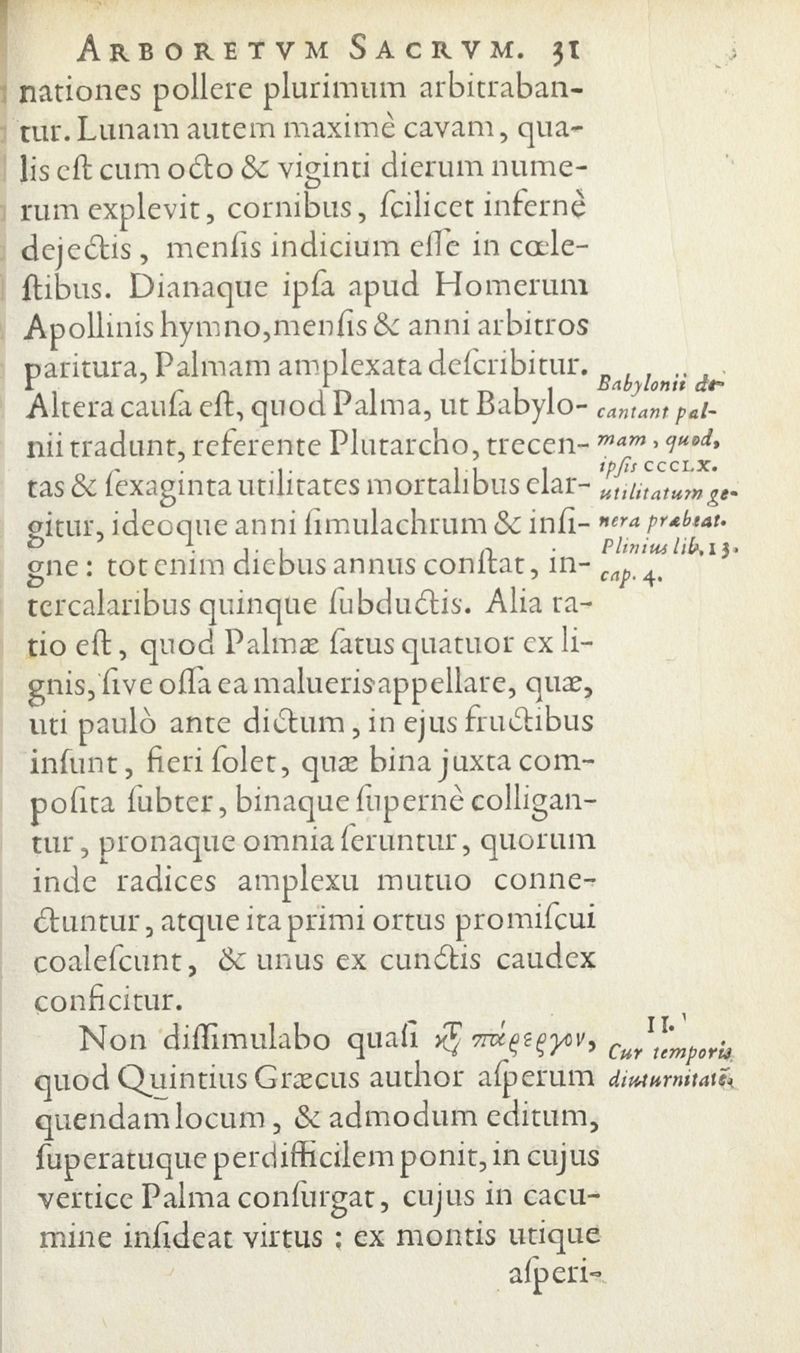 ARBORETVM SACRVM. 31
nationes pollere plurimum arbitraban-
tur. Lunam autem maximè cavam, qua-
lis eſt cum octo & viginti dierum nume-
rum explevit, cornibus, ſcilicet infernè
dejectis, menſis indicium eſſe in cœle-
ſtibus. Dianaque ipſa apud Homerum
Apollinis hymno, menſis & anni arbitros
paritura, Palmam amplexata deſcribitur.
Altera cauſa eſt, quod Palma, ut Babylo-
nii tradunt, referente Plutarcho, trecen-
tas & ſexaginta utilitates mortalibus elar-
gitur, ideoque anni ſimulachrum & inſi-
gne: tot enim diebus annus conſtat, in-
tercalaribus quinque ſubductis. Alia ra-
tio eſt, quod Palmæ ſatus quatuor ex li-
gnis, ſive oſſa ea malueris appellare, quæ,
uti paulò ante dictum, in ejus fructibus
inſunt, fieri ſolet, quæ bina juxta com-
poſita ſubter, binaque ſupernè colligan-
tur, pronaque omnia ſeruntur, quorum
inde radices amplexu mutuo conne-
ctuntur, atque ita primi ortus promiſcui
coaleſcunt, & unus ex cunctis caudex
conficitur.
Non diſſimulabo quaſi πάρεργον,
quod Quintius Græcus author aſperum
quendam locum, & admodum editum,
ſuperatuque perdifficilem ponit, in cujus
vertice Palma conſurgat, cujus in cacu-
mine inſideat virtus : ex montis utique
aſperi-
Babylonii de-
cantant pal-
mam, quod,
ipſis CCCLX.
utilitatum ge-
nera præbeat.
Plinius lib. 13.
cap. 4.
II.
Cur temporis
diuturnitatē